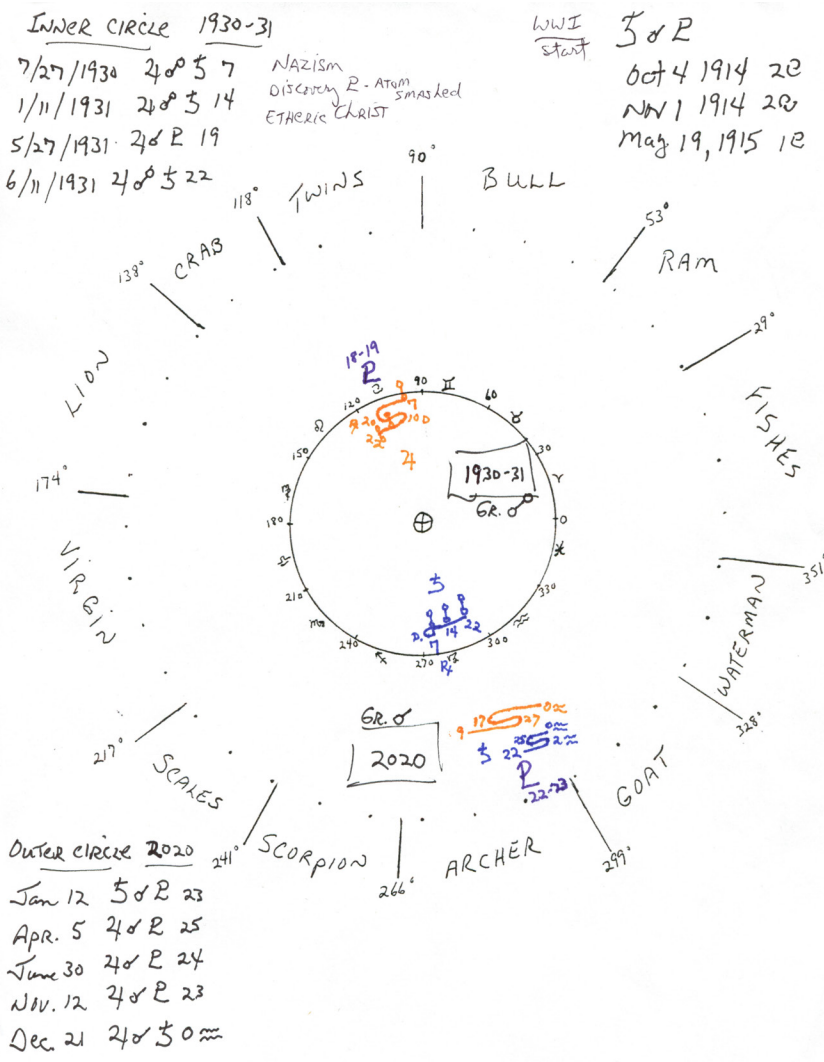 INNER CIRCLE 1930-31
7/27/1930 ♃☍♄ 7
1/11/1931 ♃☍♄ 14
5/27/1931 ♃☌P 19
6/11/1931 ♃☍♄ 22
NAZISM
DISCOVERY P - ATOM SMASHED
ETHERIC CHRIST
WWI
start
♄☌P
Oct 4 1914 2♋
NOV 1 1914 2♋
May 19, 1915 1♋
90°
118°
TWINS
BULL
53°
138°
CRAB
RAM
29°
LION
FISHES
174°
VIRGIN
351°
WATERMAN
328°
217°
SCALES
GOAT
241°
SCORPION
266°
ARCHER
299°
18-19
P
♋
90
♊
60
♉
30
♈
0
♓
330
♒
300
♑
270
♐
240
♏
210
♎
180
♍
150
♌
120
7
20
10 D
22
♃
1930-31
GR. ♂
⊕
♄
D.
14
22
7
℞
GR. ♂
2020
9
17
27
0♒
♄
22
25
0♒
2♒
P
22-23
OUTER CIRCLE 2020
Jan 12 ♄☌P 23
Apr. 5 ♃☌P 25
June 30 ♃☌P 24
Nov. 12 ♃☌P 23
Dec. 21 ♃☌♄ 0♒